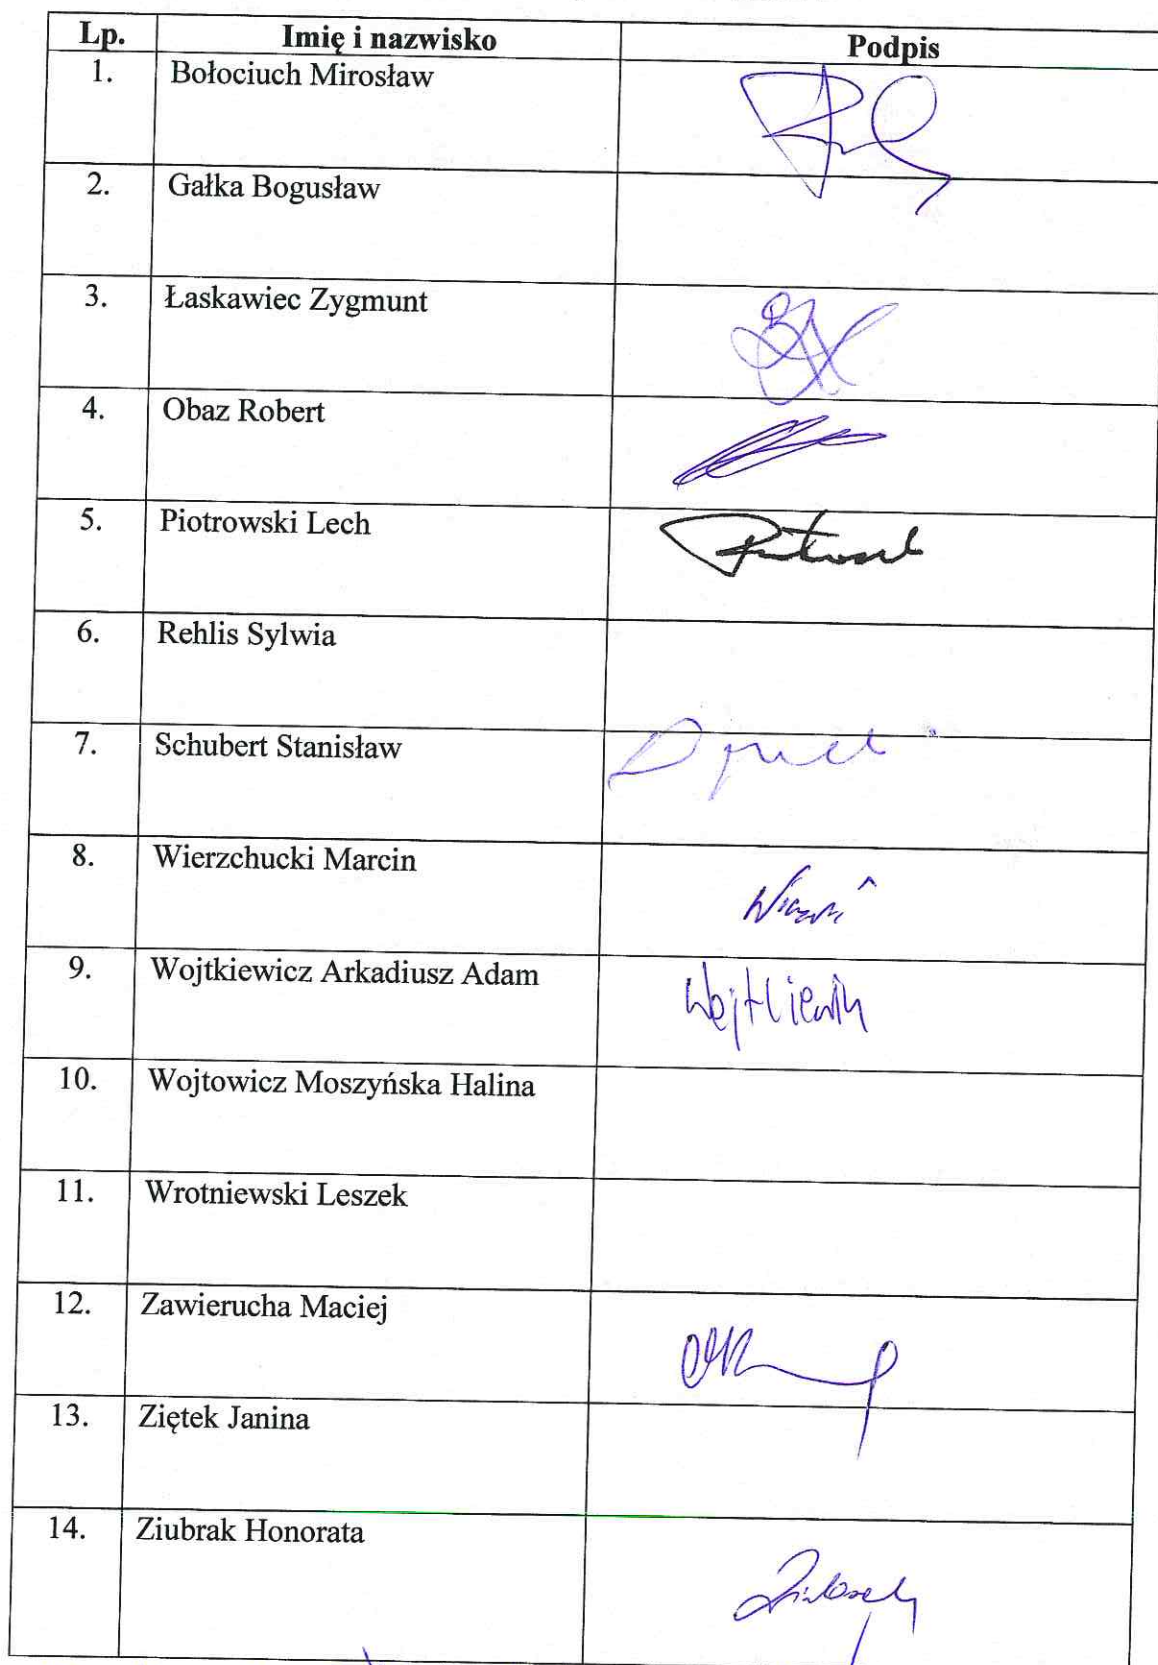 Lp. Imię i nazwisko Podpis
1. Bołociuch Mirosław
2. Gałka Bogusław
3. Łaskawiec Zygmunt
4. Obaz Robert
5. Piotrowski Lech
6. Rehlis Sylwia
7. Schubert Stanisław
8. Wierzchucki Marcin
9. Wojtkiewicz Arkadiusz Adam
10. Wojtowicz Moszyńska Halina
11. Wrotniewski Leszek
12. Zawierucha Maciej
13. Ziętek Janina
14. Ziubrak Honorata